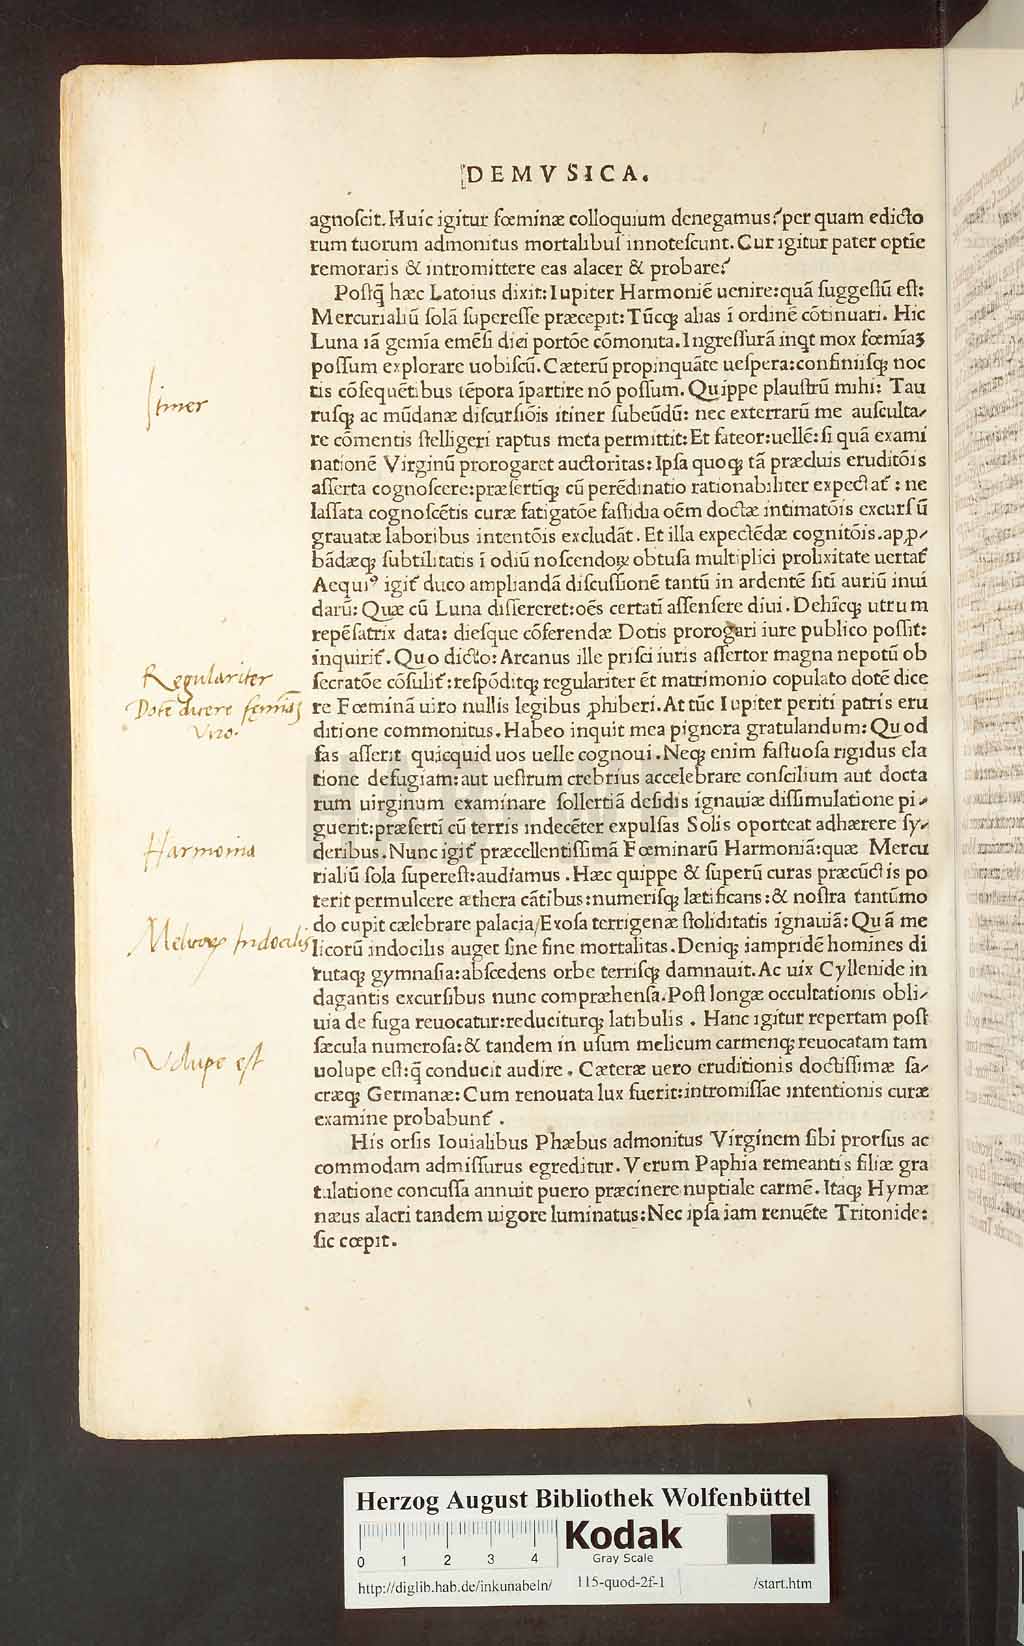 DEMVSICA.
agnoſcit. Huic igitur fœminæ colloquium denegamus? per quam edicto
rum tuorum admonitus mortalibuſ innoteſcunt. Cur igitur pater optīe
remoraris & intromittere eas alacer & probare?
Poſtꝗ̃ hæc Latoius dixit: Iupiter Harmoniē uenire: quā ſuggeſtū eſt:
Mercurialiū ſolā ſupereſſe præcepit: Tūcqꝫ alias ī ordinē cōtinuari. Hic
Luna iā gemīa emēſi diei portōe cōmonita. Ingreſſurā inqt mox fœmīaꝫ
poſſum explorare uobiſcū. Cæterū propinquāte ueſpera: confiniiſqꝫ noc
Itiner
tis cōſequētibus tēpora īpartire nō poſſum. Quippe plauſtrū mihi: Tau
ruſqꝫ ac mūdanæ diſcurſiōis itiner ſubeūdū: nec exterrarū me auſculta⸗
re cōmentis ſtelligeri raptus meta permittit: Et fateor: uellē: ſi quā exami
nationē Virginū prorogaret auctoritas: Ipſa quoqꝫ tā præcluis eruditōis
aſſerta cognoſcere: præſertīqꝫ cū perēdinatio rationabiliter expectat᷑: ne
laſſata cognoſcētis curæ fatigatōe faſtidia oēm doctæ intimatōis excurſū
grauatæ laboribus intentōis excludāt. Et illa expectēdæ cognitōis. apꝓ⸗
bādæqꝫ ſubtilitatis ī odiū noſcendoꝝ obtuſa multiplici prolixitate uertat᷑
Aequiꝰ igit᷑ duco ampliandā diſcuſſionē tantū in ardentē ſiti auriū inui
darū: Quæ cū Luna diſſereret: oēs certatī aſſenſere diui. Dehīcqꝫ utrum
repēſatrix data: dieſque cōferendæ Dotis prorogari iure publico poſſit:
inquirit᷑. Quo dicto: Arcanus ille priſci iuris aſſertor magna nepotū ob
Regulariter
ſecratōe cōſulit᷑: reſpōditqꝫ regulariter ēt matrimonio copulato dotē dice
Dotē dicere fęmīaꝫ
Viro.
re Fœminā uiro nullis legibus ꝓhiberi. At tūc Iupiter periti patris eru
ditione commonitus. Habeo inquit mea pignora gratulandum: Quod
fas aſſerit quicquid uos uelle cognoui. Neqꝫ enim faſtuoſa rigidus ela
tione defugiam: aut ueſtrum crebrius accelebrare conſcilium aut docta
rum uirginum examinare ſollertiā deſidis ignauiæ diſſimulatione pi⸗
guerit: præſerti cū terris indecēter expulſas Solis oporteat adhærere ſy⸗
Harmonia
deribus. Nunc igit᷑ præcellentiſſimā Fœminarū Harmoniā: quæ Mercu
rialiū ſola ſupereſt: audiamus. Hæc quippe & ſuperū curas præcūctis po
terit permulcere æthera cātibus: numeriſqꝫ lætificans: & noſtra tantūmo
do cupit cælebrare palacia/ Exoſa terrigenæ ſtoliditatis ignauiā: Quā me
Melicoꝝ Indocilis
licorū indocilis auget ſine fine mortalitas. Deniqꝫ iampridē homines di
rutaqꝫ gymnaſia: abſcedens orbe terriſqꝫ damnauit. Ac uix Cyllenide in
dagantis excurſibus nunc compræhenſa. Poſt longæ occultationis obli⸗
uia de fuga reuocatur: reduciturqꝫ latibulis. Hanc igitur repertam poſt
ſæcula numeroſa: & tandem in uſum melicum carmenqꝫ reuocatam tam
Volupe eſt
uolupe eſt: ꝗ̃ conducit audire. Cæteræ uero eruditionis doctiſſimæ ſa⸗
cræqꝫ Germanæ: Cum renouata lux fuerit: intromiſſae intentionis curæ
examine probabunt᷑.
His orſis Iouialibus Phæbus admonitus Virginem ſibi prorſus ac
commodam admiſſurus egreditur. Verum Paphia remeantis filiæ gra
tulatione concuſſa annuit puero præcinere nuptiale carmē. Itaqꝫ Hymæ
næus alacri tandem uigore luminatus: Nec ipſa iam renuēte Tritonide:
ſic cœpit.
HAB WF
Herzog August Bibliothek Wolfenbüttel
0 1 2 3 4
Kodak
Gray Scale
http://diglib.hab.de/inkunabeln/ 115-quod-2f-1 /start.htm